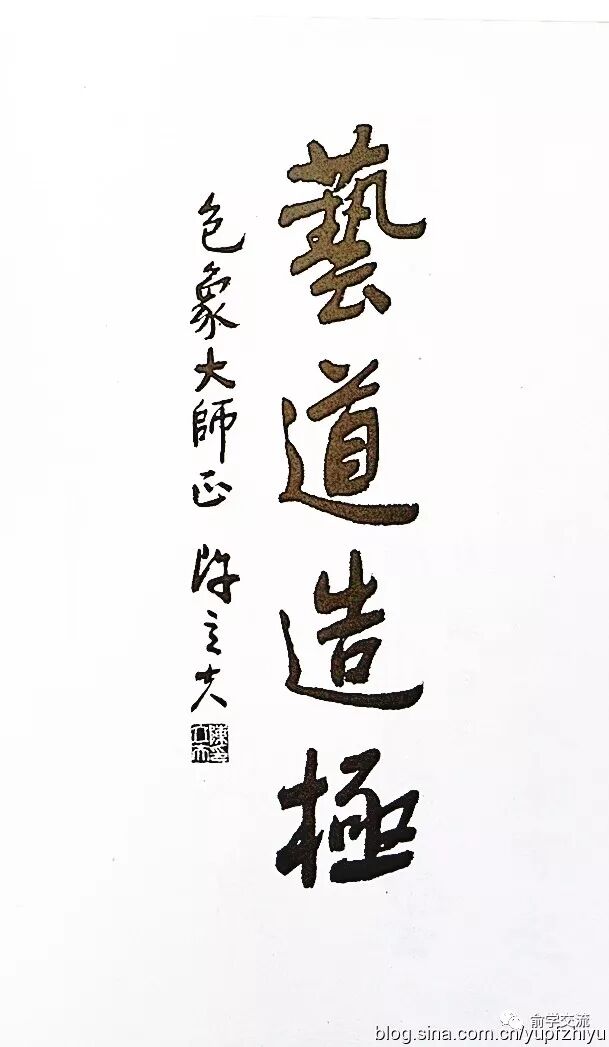 藝道造極
色象大師正 陳立夫
陳立夫印
俞学交流
blog.sina.com.cn/yupfzhiyu